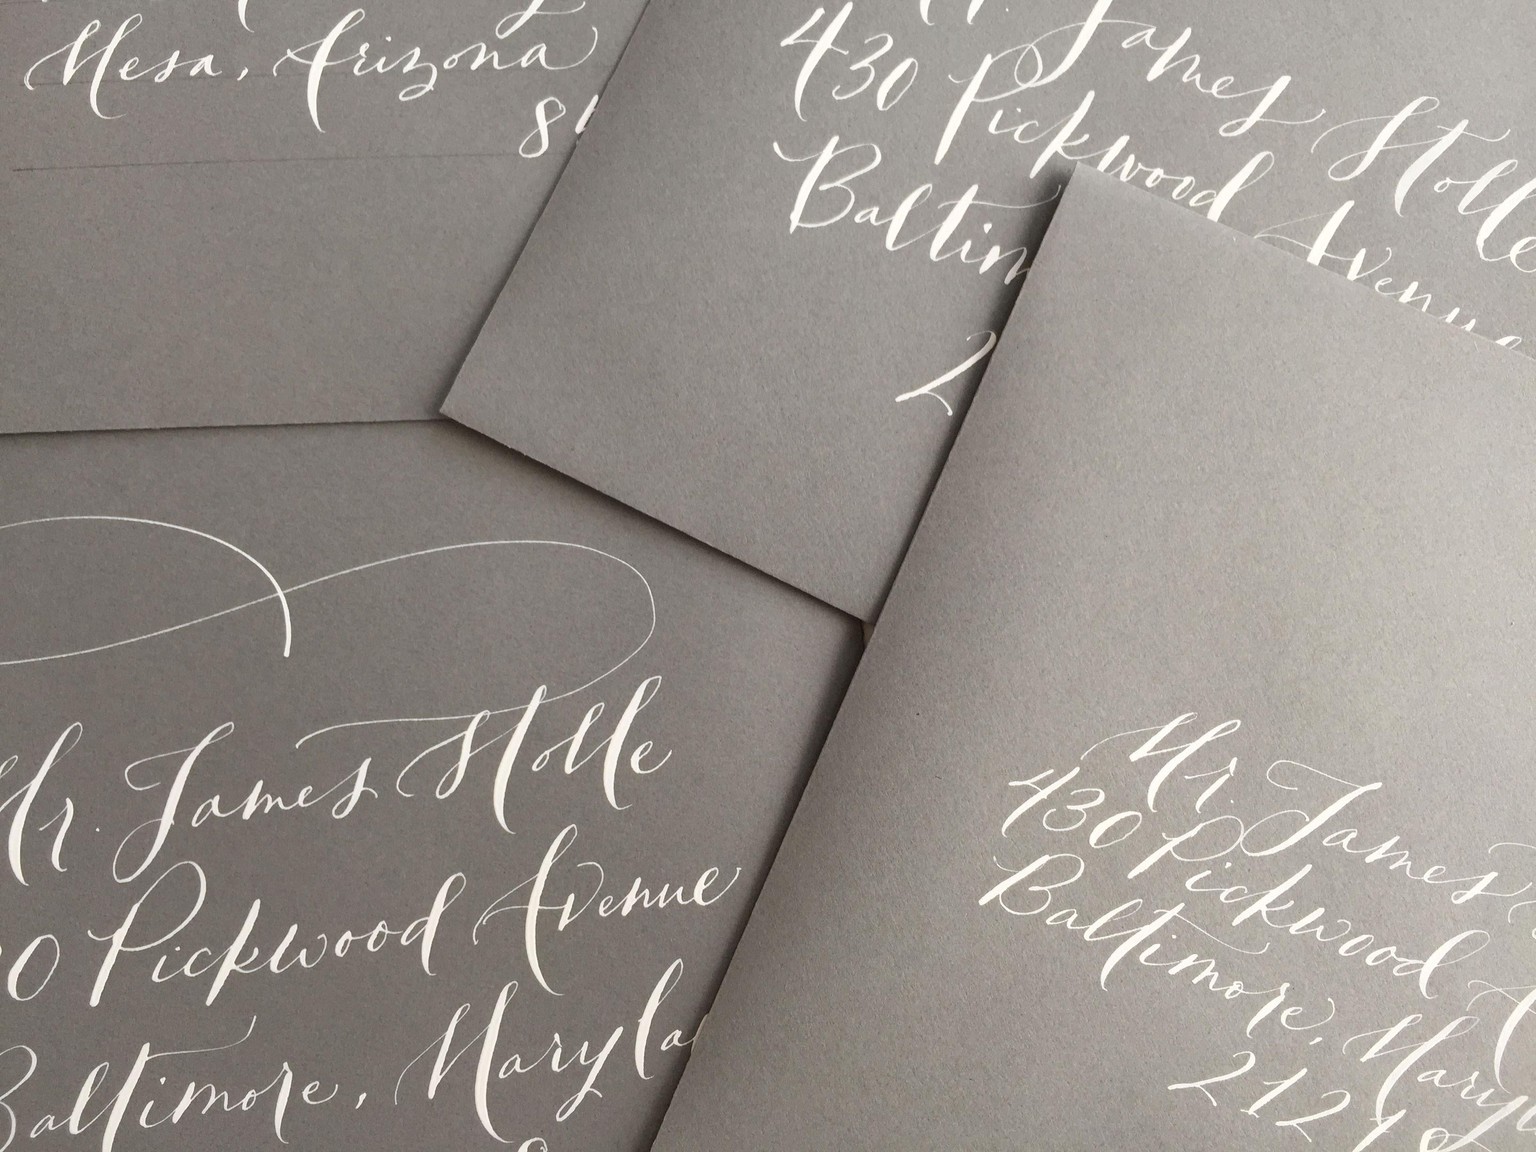 Mesa, Arizona
8
James Stolle
430 Pickwood Avenue
Baltim
2
Mr. James Stolle
0 Pickwood Avenue
Baltimore, Maryla
Mr. James
430 Pickwood A
Baltimore, Maryl
212